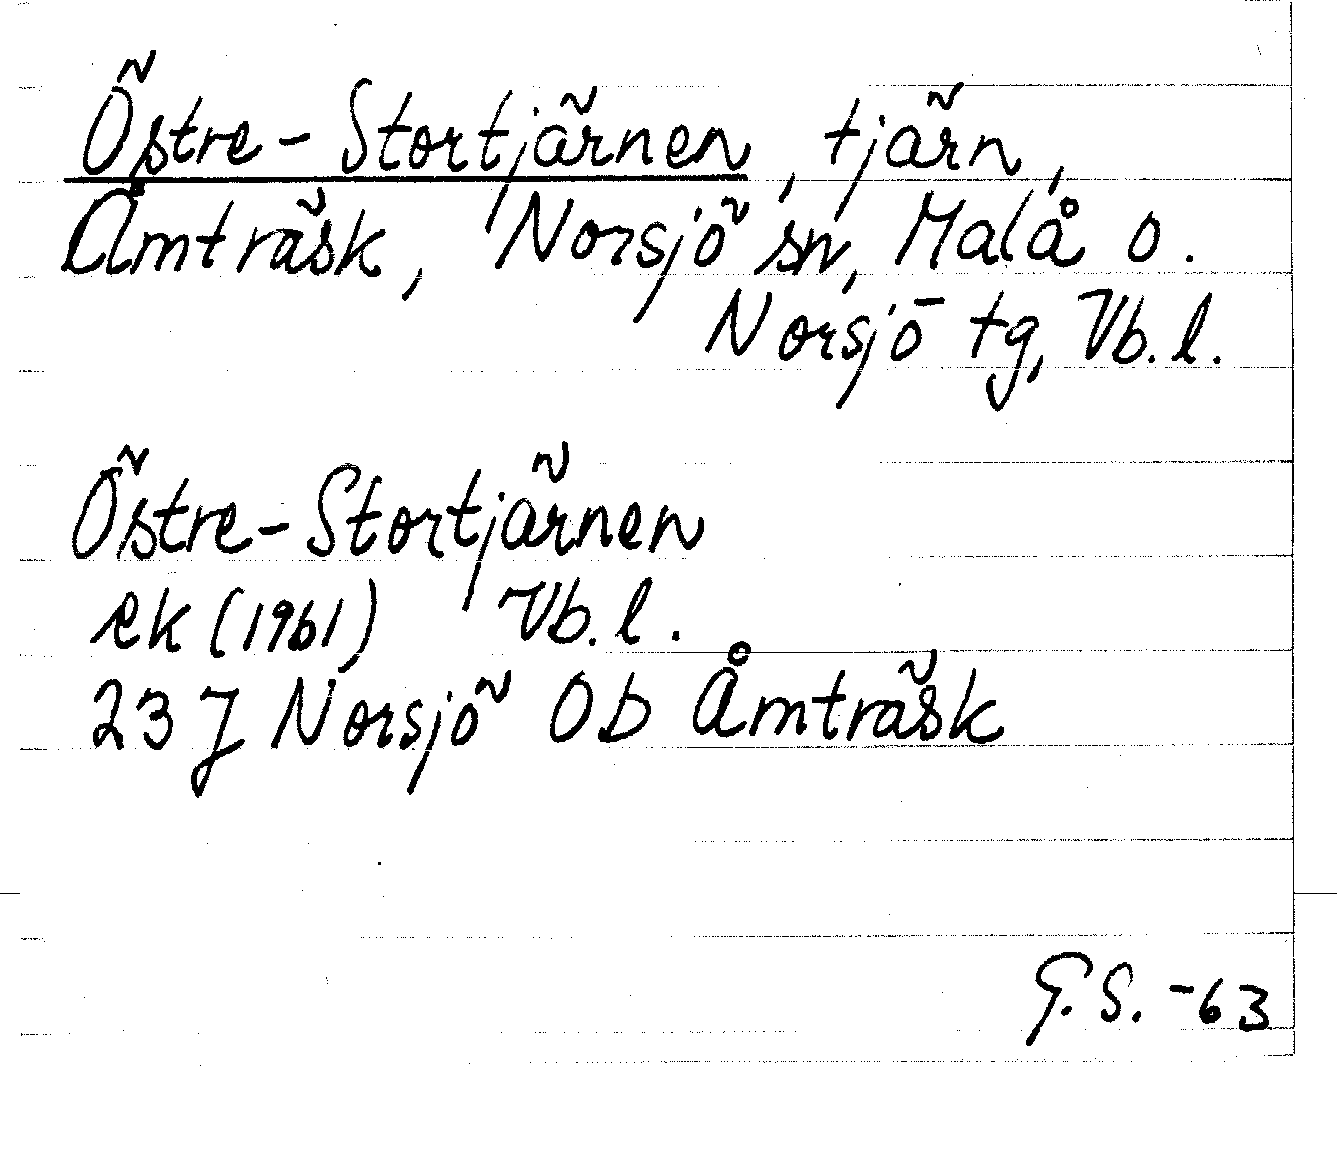 Östre-Stortjärnen, tjärn,
Åmträsk, Norsjö sn, Malå o.
Norsjö tg, Vb. l.
Östre-Stortjärnen
ek (1961) Vb. l.
23 J Norsjö Ob Åmträsk
G. S. -63